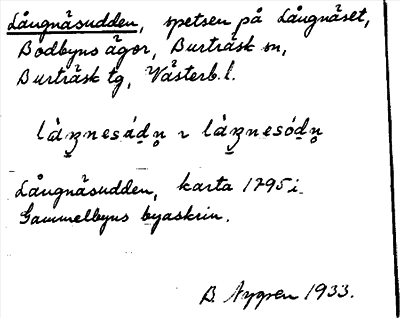 Långnäsudden, spetsen på Långnäset,
Bodbyns ägor, Burträsk sn,
Burträsk tg, Västerb. l.
Långnäsudden, karta 1795 i
Gammelbyns byaskrin.
B. Nygren 1933.